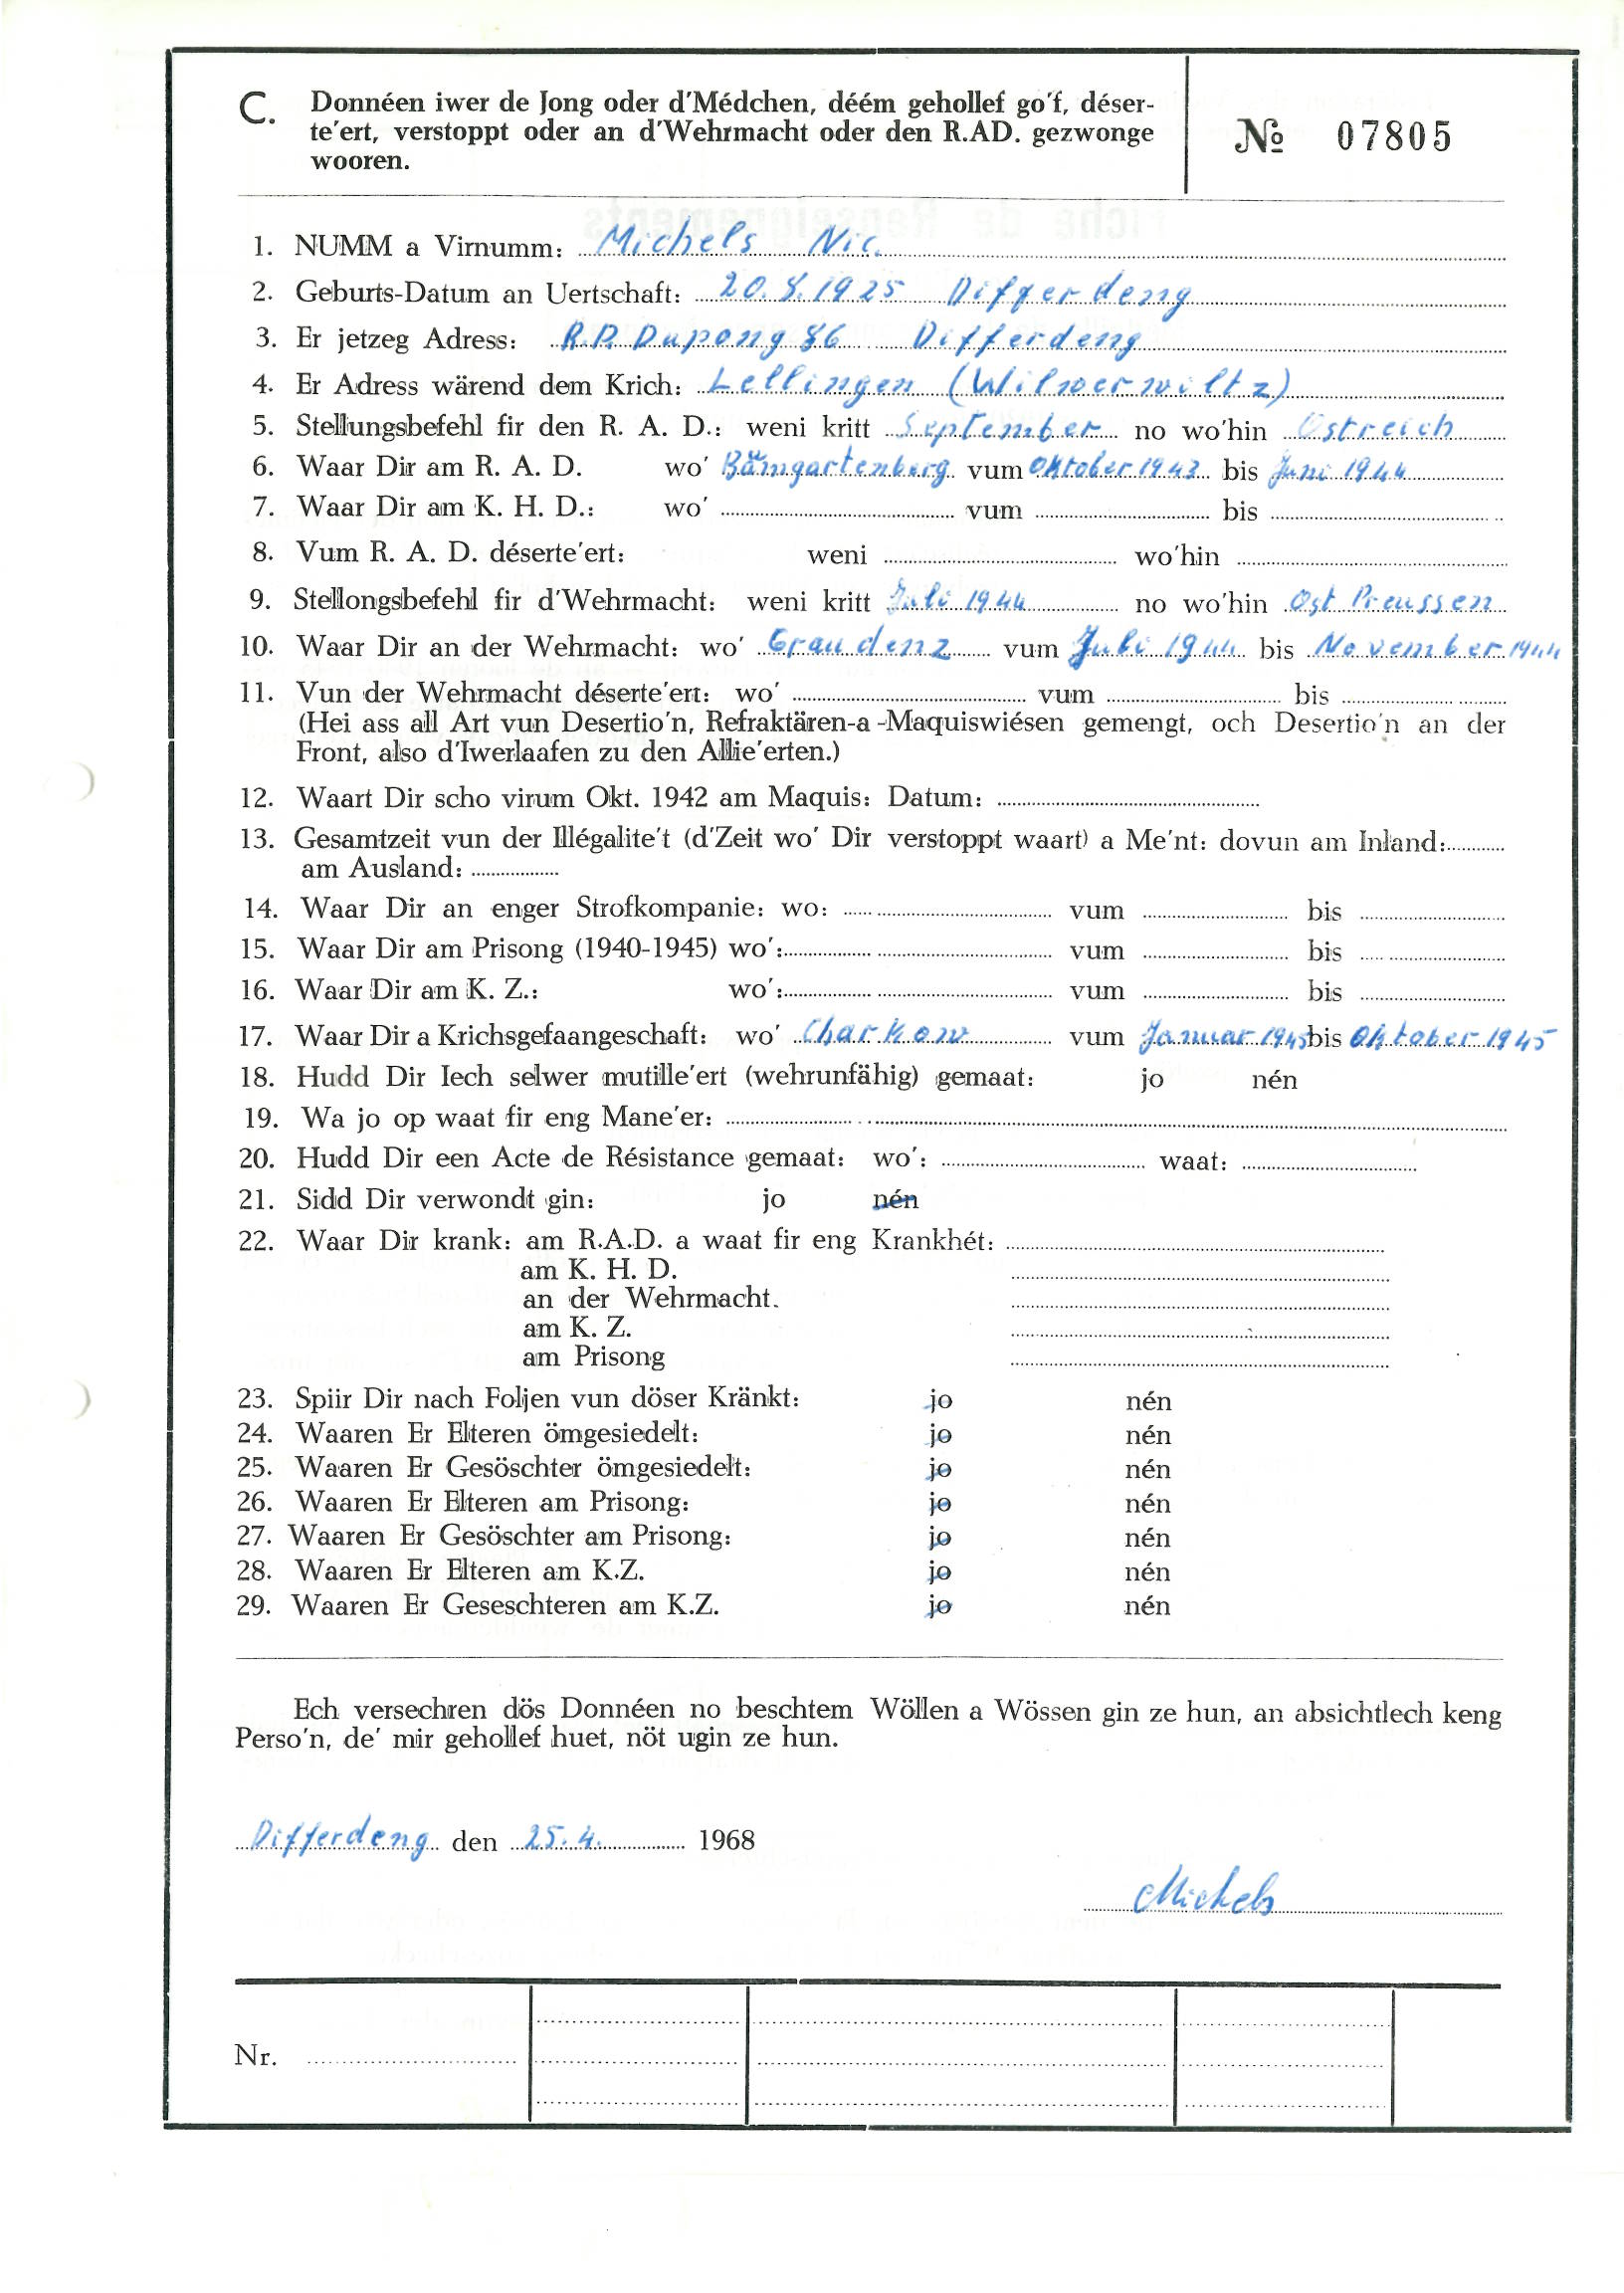 C. Donnéen iwer de Jong oder d'Médchen, déém gehollef go'f, déser-
te'ert, verstoppt oder an d'Wehrmacht oder den R.AD. gezwonge
wooren.
№ 07805
1. NUMM a Virnumm: Michels Nic.
2. Geburts-Datum an Uertschaft: 20.8.1925 Differdeng
3. Er jetzeg Adress: R.P. Dupong 86 Differdeng
4. Er Adress wärend dem Krich: Lellingen (Wilwerwiltz)
5. Stellungsbefehl fir den R. A. D.: weni kritt September no wo'hin Ostreich
6. Waar Dir am R. A. D. wo' Bämgartenberg vum Oktober 1943 bis Juni 1944
7. Waar Dir am K. H. D.: wo' vum bis
8. Vum R. A. D. déserte'ert: weni wo'hin
9. Stellongsbefehl fir d'Wehrmacht: weni kritt Juli 1944 no wo'hin Ost Preussen
10. Waar Dir an der Wehrmacht: wo' Graudenz vum Juli 1944 bis November 1944
11. Vun der Wehrmacht déserte'ert: wo' vum bis
(Hei ass all Art vun Desertio'n, Refraktären-a-Maquiswiésen gemengt, och Desertio'n an der
Front, also d'Iwerlaafen zu den Allie'erten.)
12. Waart Dir scho virum Okt. 1942 am Maquis: Datum:
13. Gesamtzeit vun der Illégalite't (d'Zeit wo' Dir verstoppt waart) a Me'nt: dovun am Inland:
am Ausland:
14. Waar Dir an enger Strofkompanie: wo: vum bis
15. Waar Dir am Prisong (1940-1945) wo': vum bis
16. Waar Dir am K. Z.: wo': vum bis
17. Waar Dir a Krichsgefaangeschaft: wo' Charkow vum Januar 1945 bis Oktober 1945
18. Hudd Dir Iech selwer mutille'ert (wehrunfähig) gemaat: jo nén
19. Wa jo op waat fir eng Mane'er:
20. Hudd Dir een Acte de Résistance gemaat: wo': waat:
21. Sidd Dir verwondt gin: jo nén
22. Waar Dir krank: am R.A.D. a waat fir eng Krankhét:
am K. H. D.
an der Wehrmacht.
am K. Z.
am Prisong
23. Spiir Dir nach Foljen vun döser Kränkt: jo nén
24. Waaren Er Elteren ömgesiedelt: jo nén
25. Waaren Er Gesöschter ömgesiedelt: jo nén
26. Waaren Er Elteren am Prisong: jo nén
27. Waaren Er Gesöschter am Prisong: jo nén
28. Waaren Er Elteren am K.Z. jo nén
29. Waaren Er Geseschteren am K.Z. jo nén
Ech versechren dös Donnéen no beschtem Wöllen a Wössen gin ze hun, an absichtlech keng
Perso'n, de' mir gehollef huet, nöt ugin ze hun.
Differdeng den 25.4. 1968
Michels
Nr.